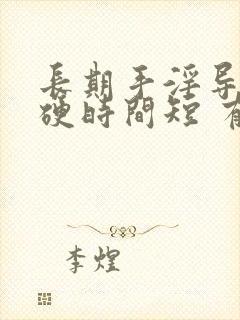 長期手淫导
硬時間短 有
李煌